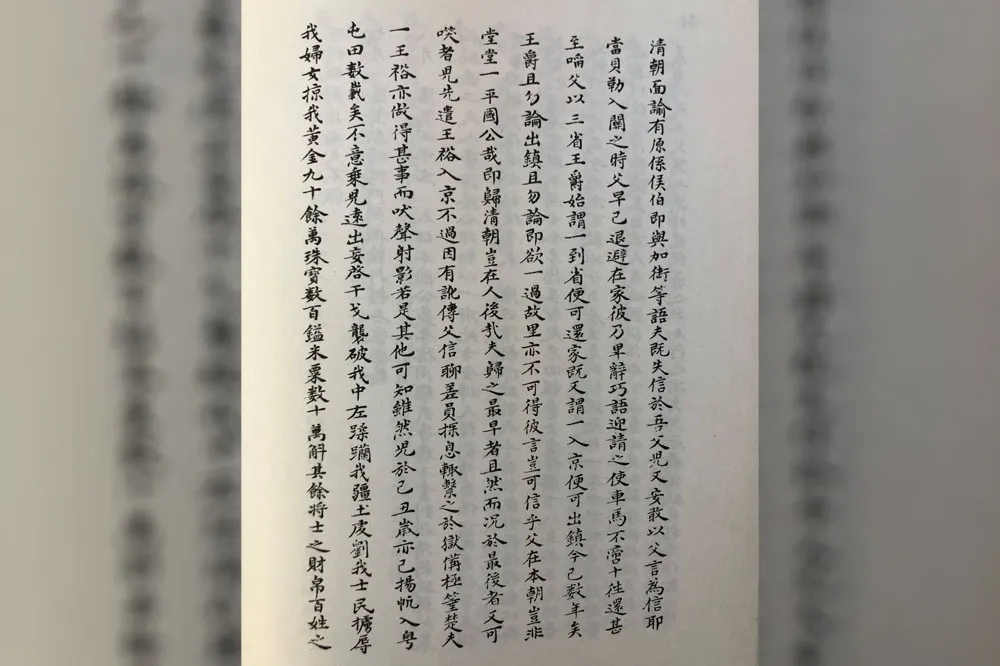 清朝面諭有原係侯伯即與加銜等語夫既失信於吾父兒又安敢以父言為信耶
當貝勒入關之時父早已退避在家彼乃卑辭巧語迎請之使車馬不啻十往還甚
至啗父以三省王爵始謂一到省便可還家既又謂一入京便可出鎮今已数年矣
王爵且勿論出鎮且勿論即欲一過故里亦不可得彼言豈可信乎父在本朝豈非
堂堂一平國公哉即歸清朝豈在人後哉夫歸之最早者且然而况於最後者又可
㗖者兒先遣王裕入京不過因有訛傳父信聊差員探息輙繫之於獄備極箠楚夫
一王裕亦做得甚事而吠聲射影若是其他可知雖然兒於己丑歲亦已揚帆入粤
屯田数載矣不意乘兒遠出妄啓干戈襲破我中左蹂躪我疆土虔劉我士民擄辱
我婦女掠我黃金九十餘萬珠寶数百鎰米粟数十萬斛其餘將士之財帛百姓之